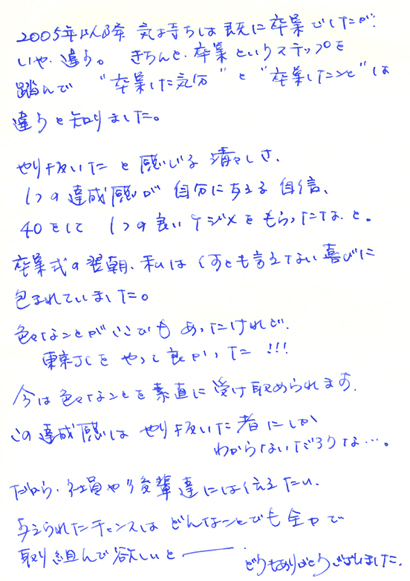 2005年以降 気持ちは既に卒業でしたが、
いや、違う。 きちんと、卒業というステップを
踏んで "卒業した気分" と "卒業したこと" は
違うと知りました。
やり抜いた と感じる 清々しさ、
1つの達成感が 自分に与える自信、
40をして 1つの良いケジメをもらったな、と。
卒業式の翌朝、私は 何とも言えない喜びに
包まれていました。
色々なことが いつでも あったけれど、
東京JCを やって良かった!!!
今は色々なことを素直に受け取められます。
この達成感は やり抜いた者にしか
わからないだろうな…。
だから、社員や後輩達には伝えたい、
与えられたチャンスは どんなことでも全力で
取り組んで欲しいと――。
どうもありがとうございました。